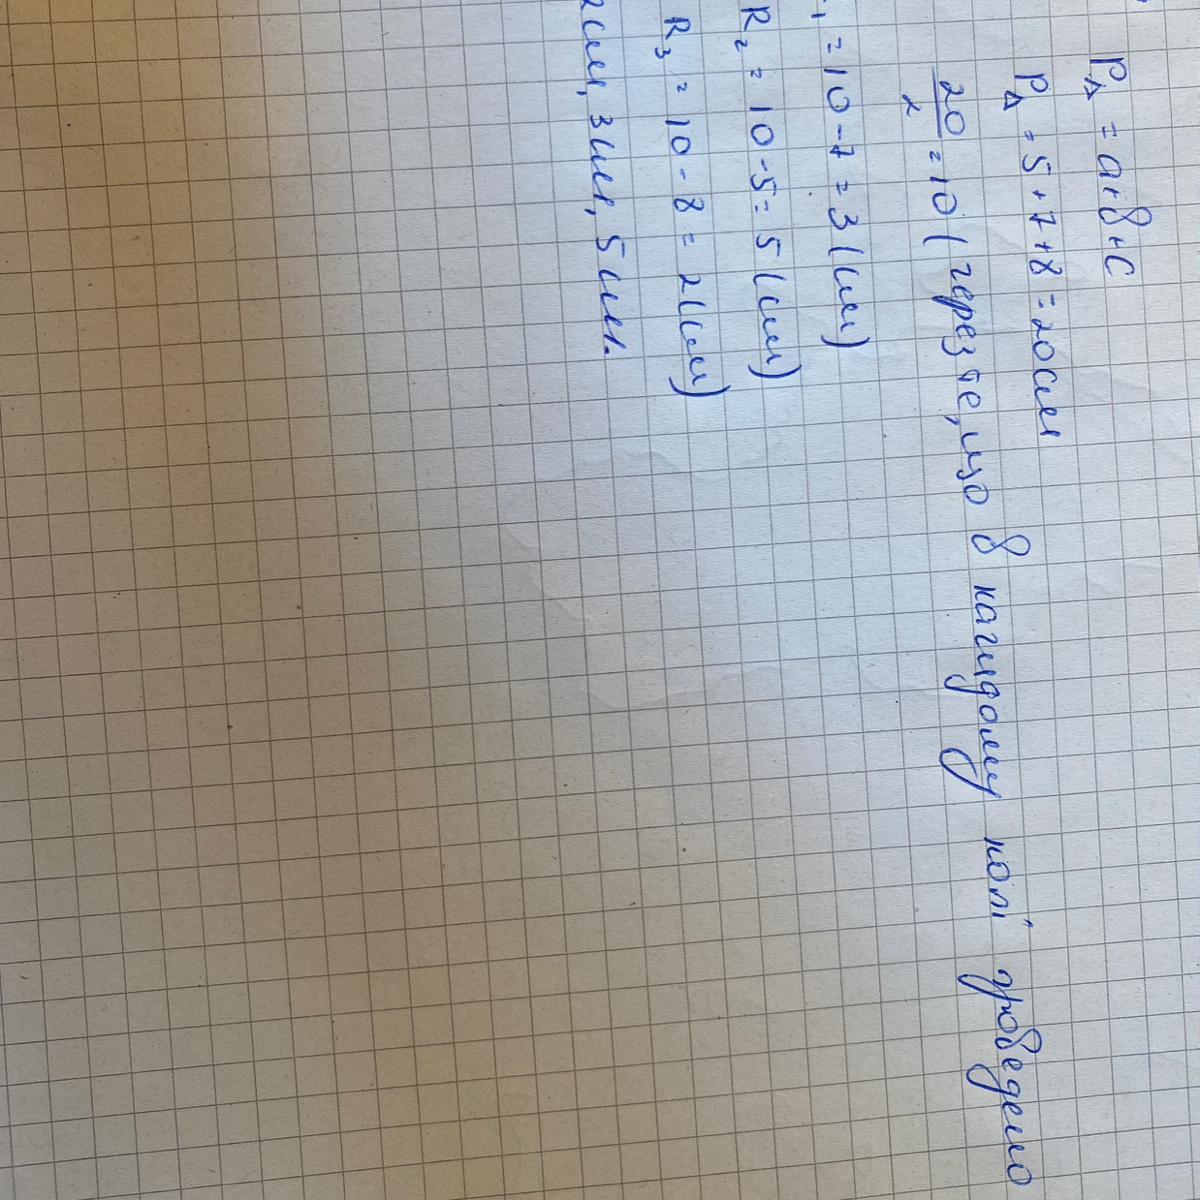 P△ = a+b+c
P△ = 5+7+8=20см
20/2 =10 (через те, що в кожному колі проведено
1 = 10-7 = 3 (см)
R2 = 10-5= 5 (см)
R3 = 10-8 = 2(см)
2см, 3см, 5см.